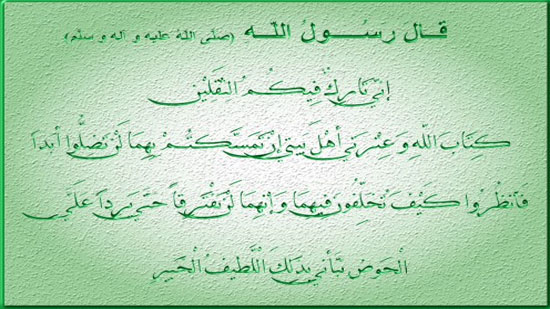 قال رسول الله (صلّى الله عليه و آله و سلّم)
إنّي تاركٌ فيكمُ الثقلين
كتابَ اللهِ و عترتي أهلَ بيتي إنْ تمسّكتُمْ بهما لَنْ تضلّوا أبداً
فانظُروا كيفَ تخلّفُون فيهما وإنهما لَنْ يفترقاً حتّى يردا علَيَّ
الْحوضَ نبّأني بذلكَ اللّطيفُ الْخبير